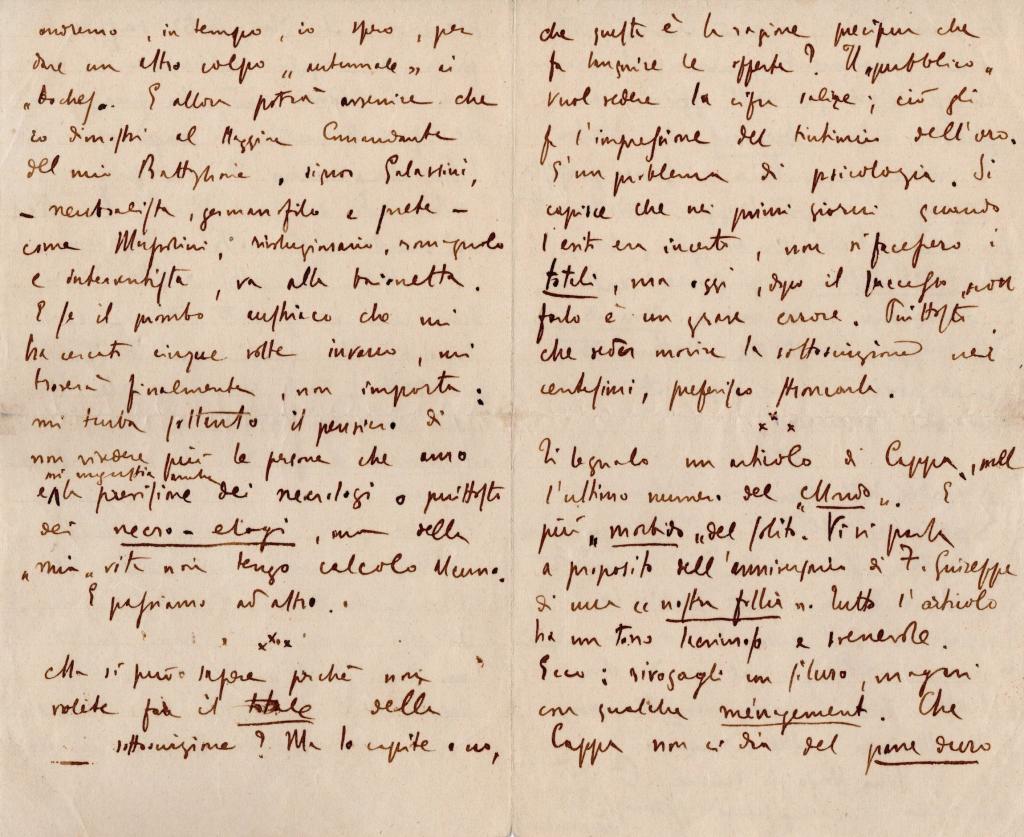 andremo, in tempo, io spero, per
dare un altro colpo „ autunnale „ ai
„ boches„. E allora potrà avvenire che
io dimostri al Maggiore Comandante
del mio Battaglione, signor Galassini,
– neutralista, germanofilo e prete –
come Mussolini, rivoluzionario, romagnolo
e interventista, va alla baionetta.
E se il piombo austriaco che mi
ha cercato cinque volte invano, mi
troverà finalmente, non importa:
mi turba soltanto il pensiero di
non rivedere più le persone che amo
mi angustia anche
e la previsione dei necrologi o piuttosto
dei necro-elogi, ma della
„ mia „ vita non tengo calcolo alcuno.
E passiamo ad altro..
xxx
Ma si può sapere perchè non
volete fare il totale della
sottoscrizione? Ma lo capite o no,
che questa è la ragione precipua che
fa languire le offerte? Il „pubblico„
vuol vedere la cifra salire; ciò gli
fa l'impressione del tintinnio dell'oro.
E' un problema di psicologia. Si
capisce che nei primi giorni quando
l'esito era incerto, non si facessero i
totali, ma oggi, dopo il successo, non
farlo è un grave errore. Piuttosto
che veder morire la sottoscrizione nei
centesimi, preferisco stroncarla.
xxx
Ti segnalo un articolo di Cappa, nell
l'ultimo numero del „Mondo„. E'
più „ morbido „ del solito. Vi si parla
a proposito dell'anniversario di F. Giuseppe
di una « nostra follia ». Tutto l'articolo
ha un tono lacrimoso e svenevole.
Ecco: rivogagli un siluro, magari
con qualche ménagement. Che
Cappa non ci dia del pane duro